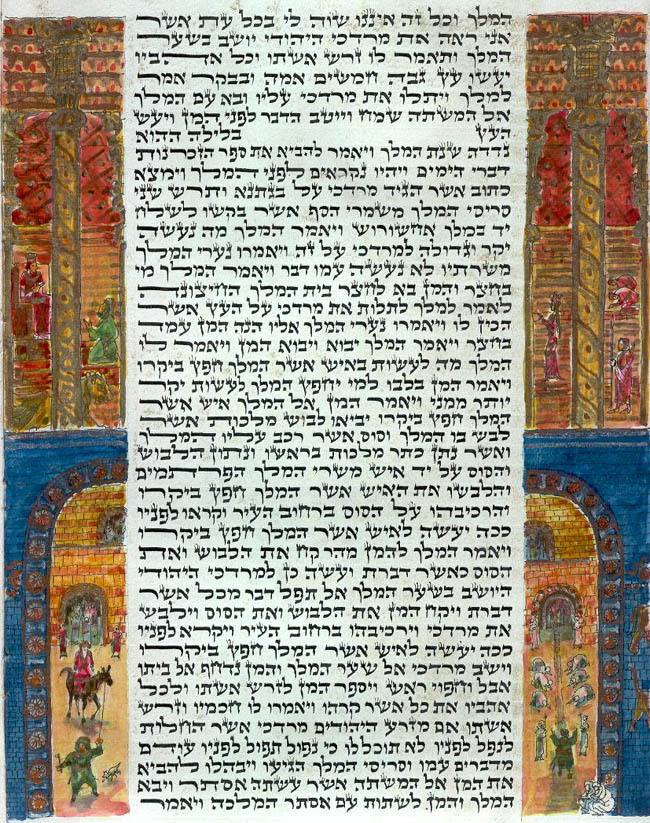 המלך וכל זה איננו שוה לי בכל עת אשר
אני ראה את מרדכי היהודי יושב בשער
המלך ותאמר לו זרש אשתו וכל אהביו
יעשו עץ גבה חמשים אמה ובבקר אמר
למלך ויתלו את מרדכי עליו ובא עם המלך
אל המשתה שמח וייטב הדבר לפני המן ויעש
העץ בלילה ההוא
נדדה שנת המלך ויאמר להביא את ספר הזכרנות
דברי הימים ויהיו נקראים לפני המלך וימצא
כתוב אשר הגיד מרדכי על בגתנא ותרש שני
סריסי המלך משמרי הסף אשר בקשו לשלח
יד במלך אחשורוש ויאמר המלך מה נעשה
יקר וגדולה למרדכי על זה ויאמרו נערי המלך
משרתיו לא נעשה עמו דבר ויאמר המלך מי
בחצר והמן בא לחצר בית המלך החיצונה
לאמר למלך לתלות את מרדכי על העץ אשר
הכין לו ויאמרו נערי המלך אליו הנה המן עמד
בחצר ויאמר המלך יבוא ויבוא המן ויאמר לו
המלך מה לעשות באיש אשר המלך חפץ ביקרו
ויאמר המן בלבו למי יחפץ המלך לעשות יקר
יותר ממני ויאמר המן אל המלך איש אשר
המלך חפץ ביקרו יביאו לבוש מלכות אשר
לבש בו המלך וסוס אשר רכב עליו המלך
ואשר נתן כתר מלכות בראשו ונתון הלבוש
והסוס על יד איש משרי המלך הפרתמים
והלבשו את האיש אשר המלך חפץ ביקרו
והרכיבהו על הסוס ברחוב העיר וקראו לפניו
ככה יעשה לאיש אשר המלך חפץ ביקרו
ויאמר המלך להמן מהר קח את הלבוש ואת
הסוס כאשר דברת ועשה כן למרדכי היהודי
היושב בשער המלך אל תפל דבר מכל אשר
דברת ויקח המן את הלבוש ואת הסוס וילבש
את מרדכי וירכיבהו ברחוב העיר ויקרא לפניו
ככה יעשה לאיש אשר המלך חפץ ביקרו
וישב מרדכי אל שער המלך והמן נדחף אל ביתו
אבל וחפוי ראש ויספר המן לזרש אשתו ולכל
אהביו את כל אשר קרהו ויאמרו לו חכמיו וזרש
אשתו אם מזרע היהודים מרדכי אשר החלות
לנפל לפניו לא תוכל לו כי נפול תפול לפניו עודם
מדברים עמו וסריסי המלך הגיעו ויבהלו להביא
את המן אל המשתה אשר עשתה אסתר ויבא
המלך והמן לשתות עם אסתר המלכה ויאמר